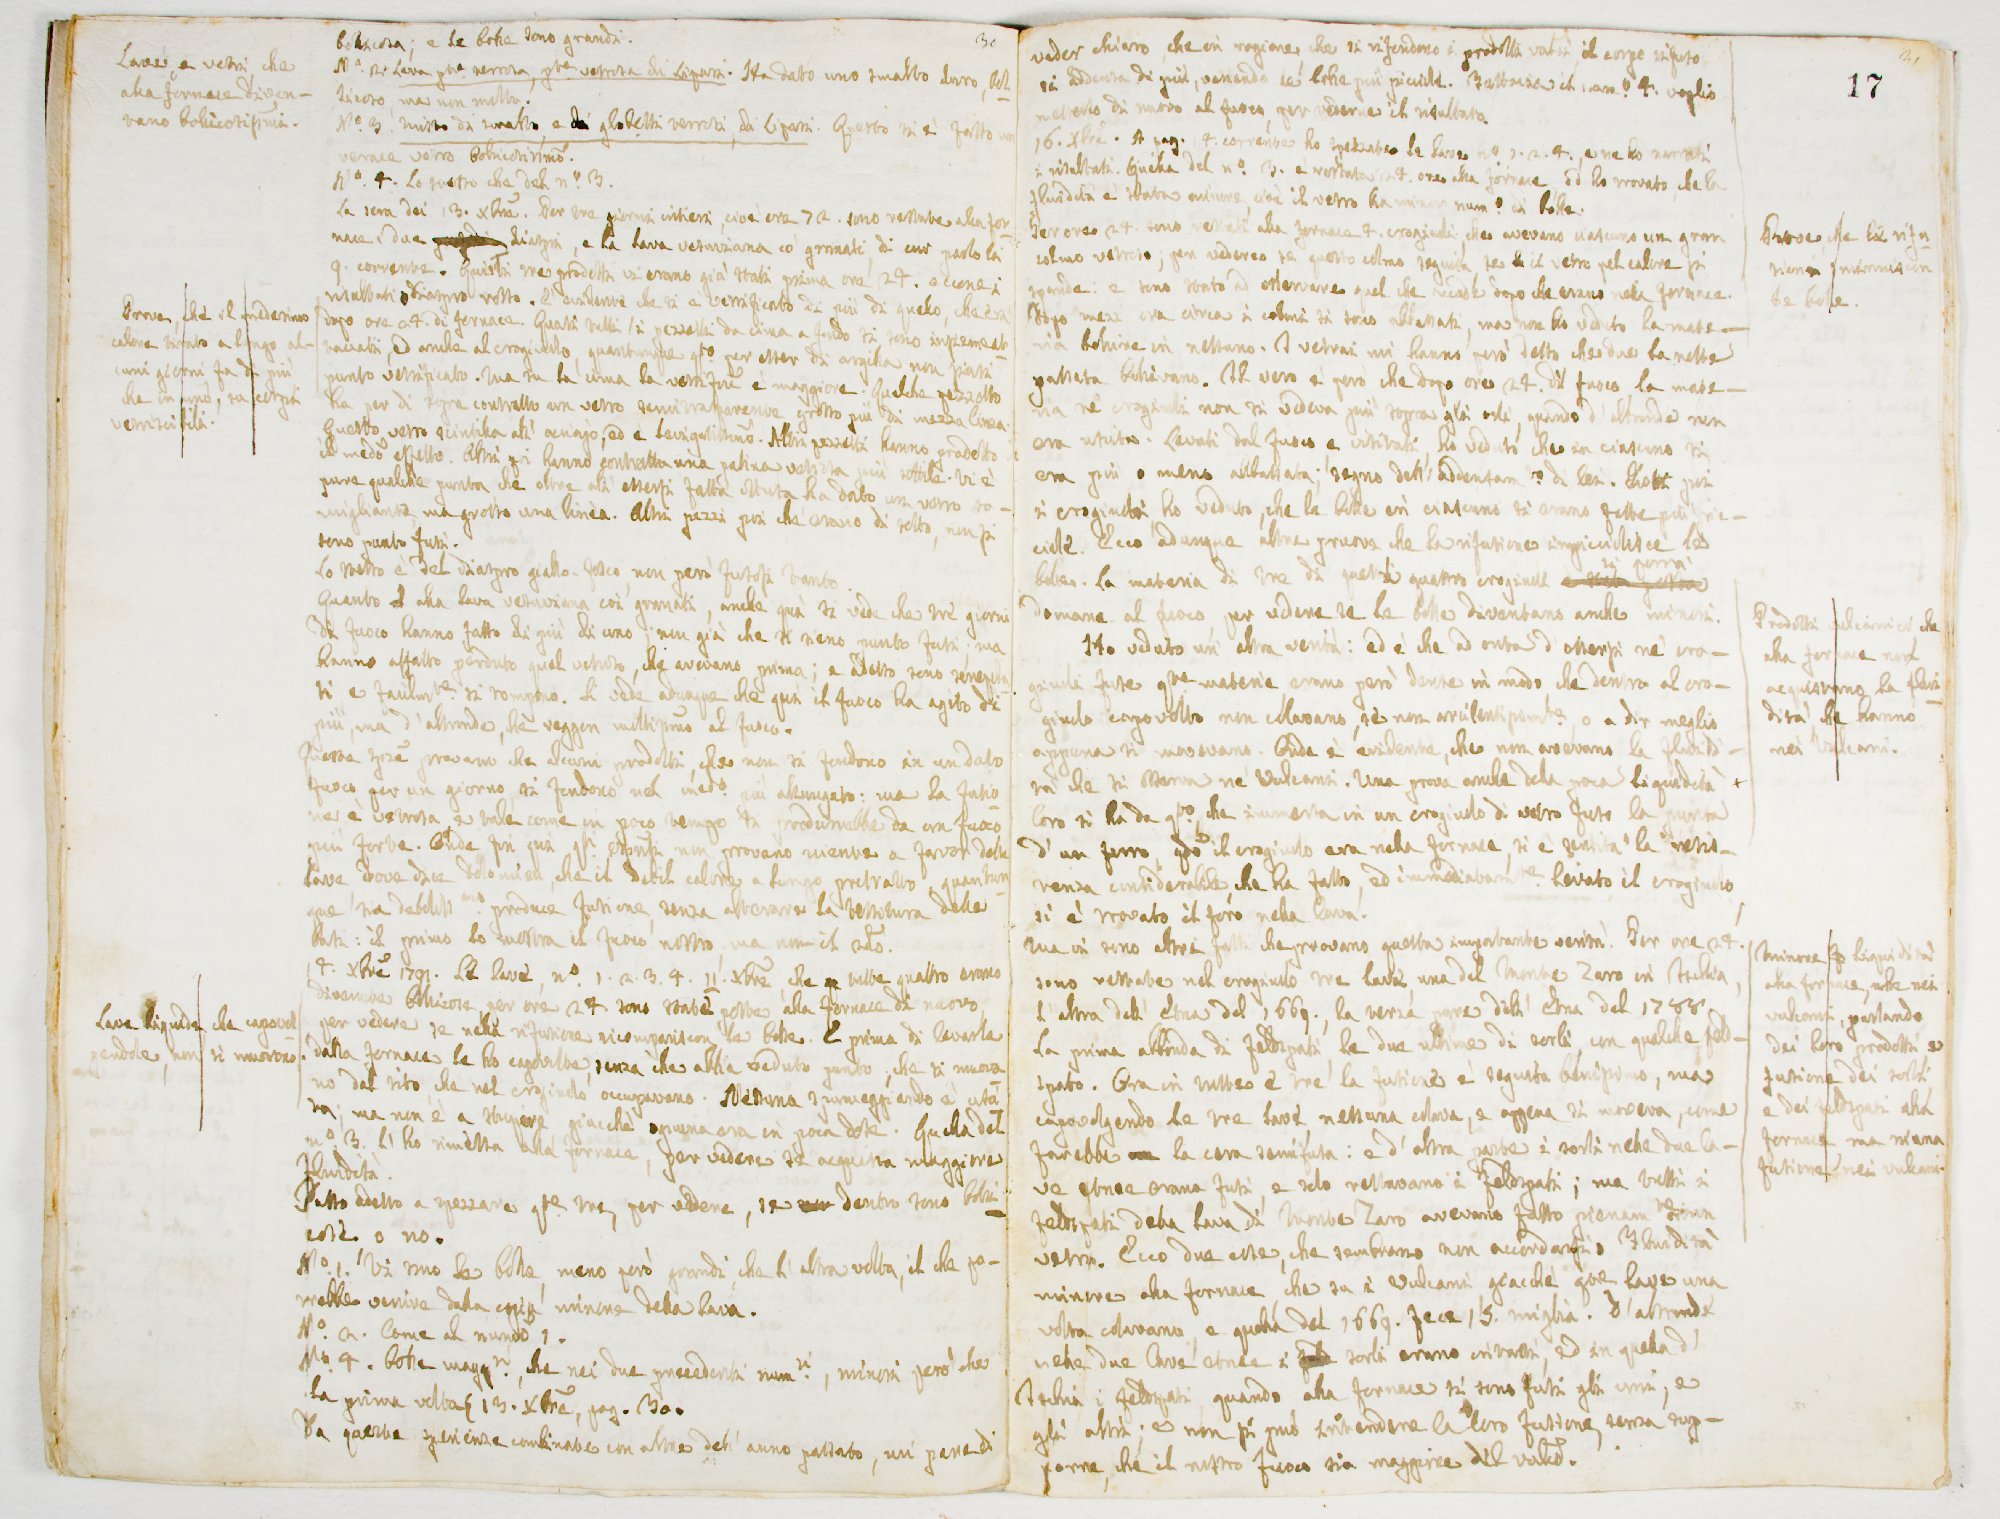 30
bollicosa; e le bolle sono grandi.
N.º 2. Lava pte terrosa, pte vetrosa di Lipari. Ha dato uno smalto duro, bol-
licoso, ma non molto.
N.º 3. misto di smalto, e di globetti terrosi, di Lipari. Questo si è fatto un
verace vetro bollicosissimo.
N.º 4. Lo stesso che del n.º 3.
La sera dei 13. Xbre. Per tre giorni intieri, cioè ore 72. sono restate alla for-
nace i due diaspri, e la lava vesuviana co' granati, di cui parlo li
9. corrente. Questi tre prodotti vi erano già stati prima ore 24. eccone i
risultati. Diaspro rosso. È evidente che si è vetrificato di più di quello, che era
dopo ore 24. di fornace. Quasi tutti i pezzetti da cima a fondo si sono insieme at-
taccati, ed anche al crogiuolo, quantunque qto per esser di argilla non siasi
punto vetrificato. Ma su la cima la vetrifne è maggiore. Qualche pezzetto
ha per di sopra contratto un vetro semitrasparente grosso più di mezza linea.
Questo vetro scintilla all' acciajo, ed è levigatissimo. Altri pezzetti hanno prodotto
il medo effetto. Altri poi hanno contratta una patina vetrosa più sottile. Vi è
pure qualche punta che oltre all' essersi fatta ottusa ha dato un vetro so-
migliante, ma grosso una linea. Altri pezzi poi che erano di sotto, non si
sono punto fusi.
Lo stesso è del diaspro giallo-fosco, non però fusosi tanto.
Quanto alla lava vesuviana coi granati, anche quà si vede che tre giorni
di fuoco hanno fatto di più di uno; non già che si sieno punto fusi, ma
hanno affatto perduto quel vetroso, che avevano prima; e adesso sono
e facilmte si rompono. Si vede adunque che qui il fuoco ha agito di
più, ma d' altronde, che reggon moltissimo al fuoco.
Queste spze provano che alcuni prodotti, che non si fondono in un dato
fuoco per un giorno, si fondono nel medo più allungato: ma la fusio-
ne è vetrosa e tale come in poco tempo si produrrebbe da un fuoco
più forte. Onde fin qui qti non provano niente a favor delle
lave, dove dice Dolomieu, che il debil calore a lungo protratto, quantun-
que sia debolissimo produce fusione, senza alterare la tessitura delle
basi: il primo lo mostra il fuoco nostro, ma non il 2do.
14. Xbre 1791. Le lave, n.º 1. 2. 3. 4. 11. Xbre, che tutte quattro erano
divenute bollicose per ore 24 sono state poste alla fornace di nuovo,
per vedere se nella rifusione ricompariscon le bolle. E prima di levarle
dalla fornace le ho capovolte, senza che abbia veduto punto, che si muova-
no dal sito, che nel crogiuolo occupavano. Nessuna spumeggiando è usci-
ta; ma non è a stupire giacchè ognuna era in poca dose. Quella del
n.º 3. l' ho rimessa alla fornace, per vedere se acquista maggiore
fluidità.
Fatto adesso a spezzare qte tre, per vedere, se dentro sono bolli-
cose o no.
N.º 1. Vi sono le bolle, meno però grandi, che l' altra volta, il che po-
trebbe venire dalla copia minore della lava.
N.º 2. Come al numero 1.
N.º 4. Bolle maggri, che nei due precedenti numri, minori però che
la prima volta (13. Xbre, pag. 30.
Da queste sperienze combinate con altre dell' anno passato, mi pare di
Lave e vetri, che
alla fornace diven-
tano bollicosissimi.
Prove, che il medesimo
calore tirato a lungo al-
cuni giorni fa di più
che in uno, su corpi
vetrificabili.
Lave liquide, che capovol-
gendole, non si muovono.
31
17
veder chiaro, che in ragione, che si rifondono i prodotti varj, il corpo rifuso
si addensa di più, venendo le bolle più picciole. Tuttavia il num.º 4. voglio
metterlo di nuovo al fuoco, per vederne il risultato.
16. Xbre. A pag. 14. corrente ho spezzate le lave n.º 1. 2. 4., e ne ho narrati
i risultati. Quella del n.º 3. è restata 24. ore alla fornace, ed ho trovato, che la
fluidità è stata minore, cioè il vetro ha minor num.º di bolle.
Per ore 24. sono restati alla fornace 4. crogiuoli, che avevano ciascuno un gran
colmo vetroso, per vedere se questo colmo seguita, se il vetro pel calore si
spande: e sono stato ad osservare quel che accade dopo che erano nella fornace.
Dopo mezz' ora circa i colmi si sono abbassati, ma non ho veduto la mate-
ria bollire in nessuno. I vetrai mi hanno però detto che due la notte
passata bollivano. Il vero è però che dopo ore 24. di fuoco la mate-
ria ne' crogiuoli non si vedeva più sopra gli orli, quando d' altronde non
era uscita. Levati dal fuoco, e intirati, ho veduto che in ciascuno si
era più o meno abbassata; segno dell' addensamto di lei. Rotti poi
i crogiuoli ho veduto, che le bolle in ciascuno si erano fatte più pic-
ciole. Ecco adunque altre pruove che la rifusione impicciolisce le
bolle. La materia di tre di questi quattro crogiuoli si porrà
domane al fuoco per vedere se le bolle diventano anche minori.
Ho veduto un' altra verità: ed è che ad onta d' essersi ne' cro-
giuoli fuse qte materie, erano però dense in modo, che dentro al cro-
giuolo capovolto non colavano, se non arcilentissimte, o a dir meglio
appena si movevano. Onde è evidente, che non avevano la fluidi-
tà che si osserva ne' Vulcani. Una prova anche della poca liquidità +
loro si ha da qto, che immersa in un crogiuolo di vetro fuso la punta
d' un ferro, qdo il crogiuolo era nella fornace, si è sentita la resis-
tenza considerabile, che ha fatto, ed immediatamte levato il crogiuolo
si è trovato il foro nella lava.
Ma vi sono altri fatti che provano questa importante verità. Per ore 24.
sono restate nel crogiuolo tre lave, una del Monte Zaro in Ischia,
l' altra dell' Etna del 1669., la terza pure dell' Etna del 1788.
La prima abbonda di feldspati le due ultime di sorli, con qualche feld-
spato. Ora in tutte e tre la fusione è seguita benissimo, ma
capovolgendo le tre lave nessuna colava, e appena si moveva, come
farebbe la cera semifusa: e d' altra parte i sorli nelle due la-
ve etnee erano fusi, e solo restavano i feldspati; ma tutti i
feldspati della lava di Monte Zaro avevano fatto pienamte un
vetro. Ecco due cose, che sembrano non accordarsi. Fluidità
minore alla fornace che su i Vulcani, giacchè qte lave una
volta colavano, e quella del 1669. fece 15. miglia. D' altronde
nelle due lave etnee i sorli erano intatti, ed in quella d'
Ischia i feldspati, quando alla fornace si sono fusi gli uni, e
gli altri; e non si può intendere la loro fusione, senza sup-
porre, che il nostro fuoco sia maggiore del vulco.
Prove che la rifu-
sione
le bolle.
Prodotti vulcanici che
alla fornace non
acquistano la flui-
dità che hanno
nei Vulcani.
Minore liquidità
alla fornace, che nei
vulcani, parlando
dei loro prodotti e
fusione dei sorli
e dei feldspati alla
fornace ma niuna
fusione nei vulcani.